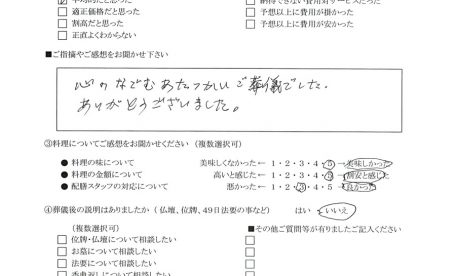 ☑ 平均的だと思った　□ 納得できない費用がサービスだった
□ 適正価格だと思った　□ 予想以上に費用が掛かった
□ 割高だと思った　□ 予想以上に費用が安かった
□ 正直よくわからない
■ご指摘やご感想をお聞かせ下さい
心のなごむあたたかいご葬儀でした。
ありがとうございました。
③料理についてご感想をお聞かせください（複数選択可）
● 料理の味について　美味しくなかった←1・2・3・4・5→美味しかった
● 料理の金額について　高いと感じた←1・2・3・4・5→割安と感じた
● 配膳スタッフの対応について　悪かった←1・2・3・4・5→良かった
④葬儀後の説明はありましたか（仏壇、位牌、49日法要の事など）　はい・いいえ
（複数選択可）　■その他ご質問等が有りましたご記入ください
□ 位牌・仏壇について相談したい　□
□ お墓について相談したい　□
□ 法要について相談したい　□
□ 香典返しについて相談したい　□